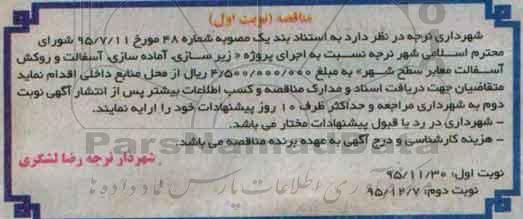 مناقصه (نوبت اول)
شهرداری نرجه در نظر دارد به استناد بند یک مصوبه شماره ۴۸ مورخ ۹۵/۷/۱۱ شورای
محترم اسلامی شهر نرجه نسبت به اجرای پروژه « زیر سازی، آماده سازی، آسفالت و روکش
آسفالت معابر سطح شهر» به مبلغ ۴/۵۰۰/۰۰۰/۰۰۰ ریال از محل منابع داخلی اقدام نماید
متقاضیان جهت دریافت اسناد و مدارک مناقصه و کسب اطلاعات بیشتر پس از انتشار آگهی نوبت
دوم به شهرداری مراجعه و حداکثر ظرف ۱۰ روز پیشنهادات خود را ارایه نمایند.
- شهرداری در رد یا قبول پیشنهادات مختار می باشد.
- هزینه کارشناسی و درج آگهی به عهده برنده مناقصه می باشد.
شهردار نرجه رضا لشگری
نوبت اول: ۹۵/۱۱/۳۰
نوبت دوم: ۹۵/۱۲/۷
ParsNamadData